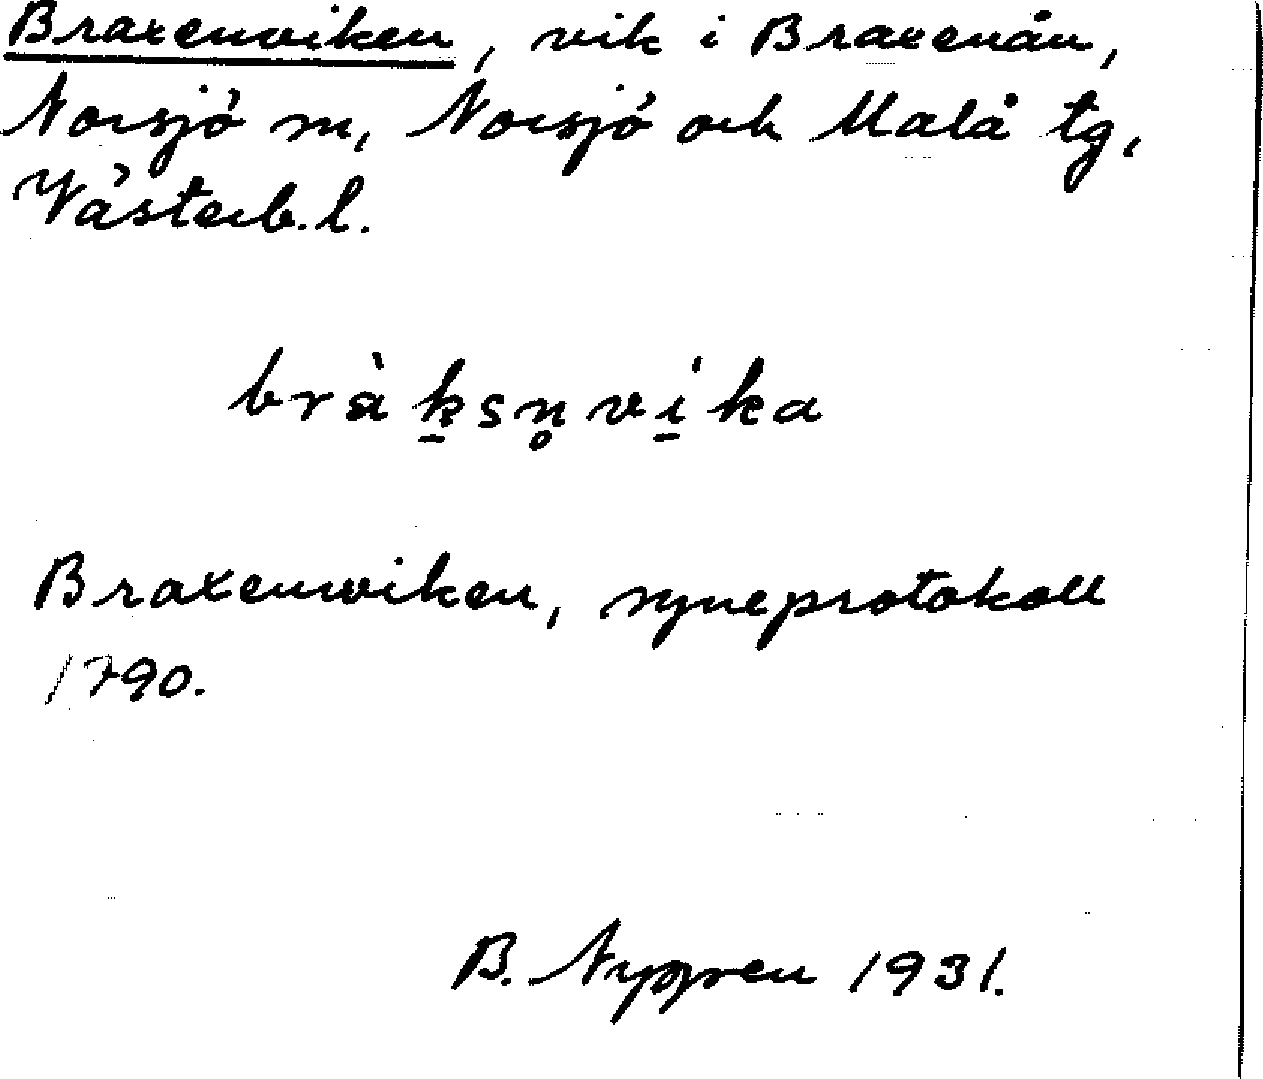 Braxenviken, vik i Braxenån,
Norsjö sn, Norsjö och Malå tg,
Västerb.l.
bràk̠sn̥ví̠ka
Braxenwiken, syneprotokoll
1790.
B. Nygren 1931.